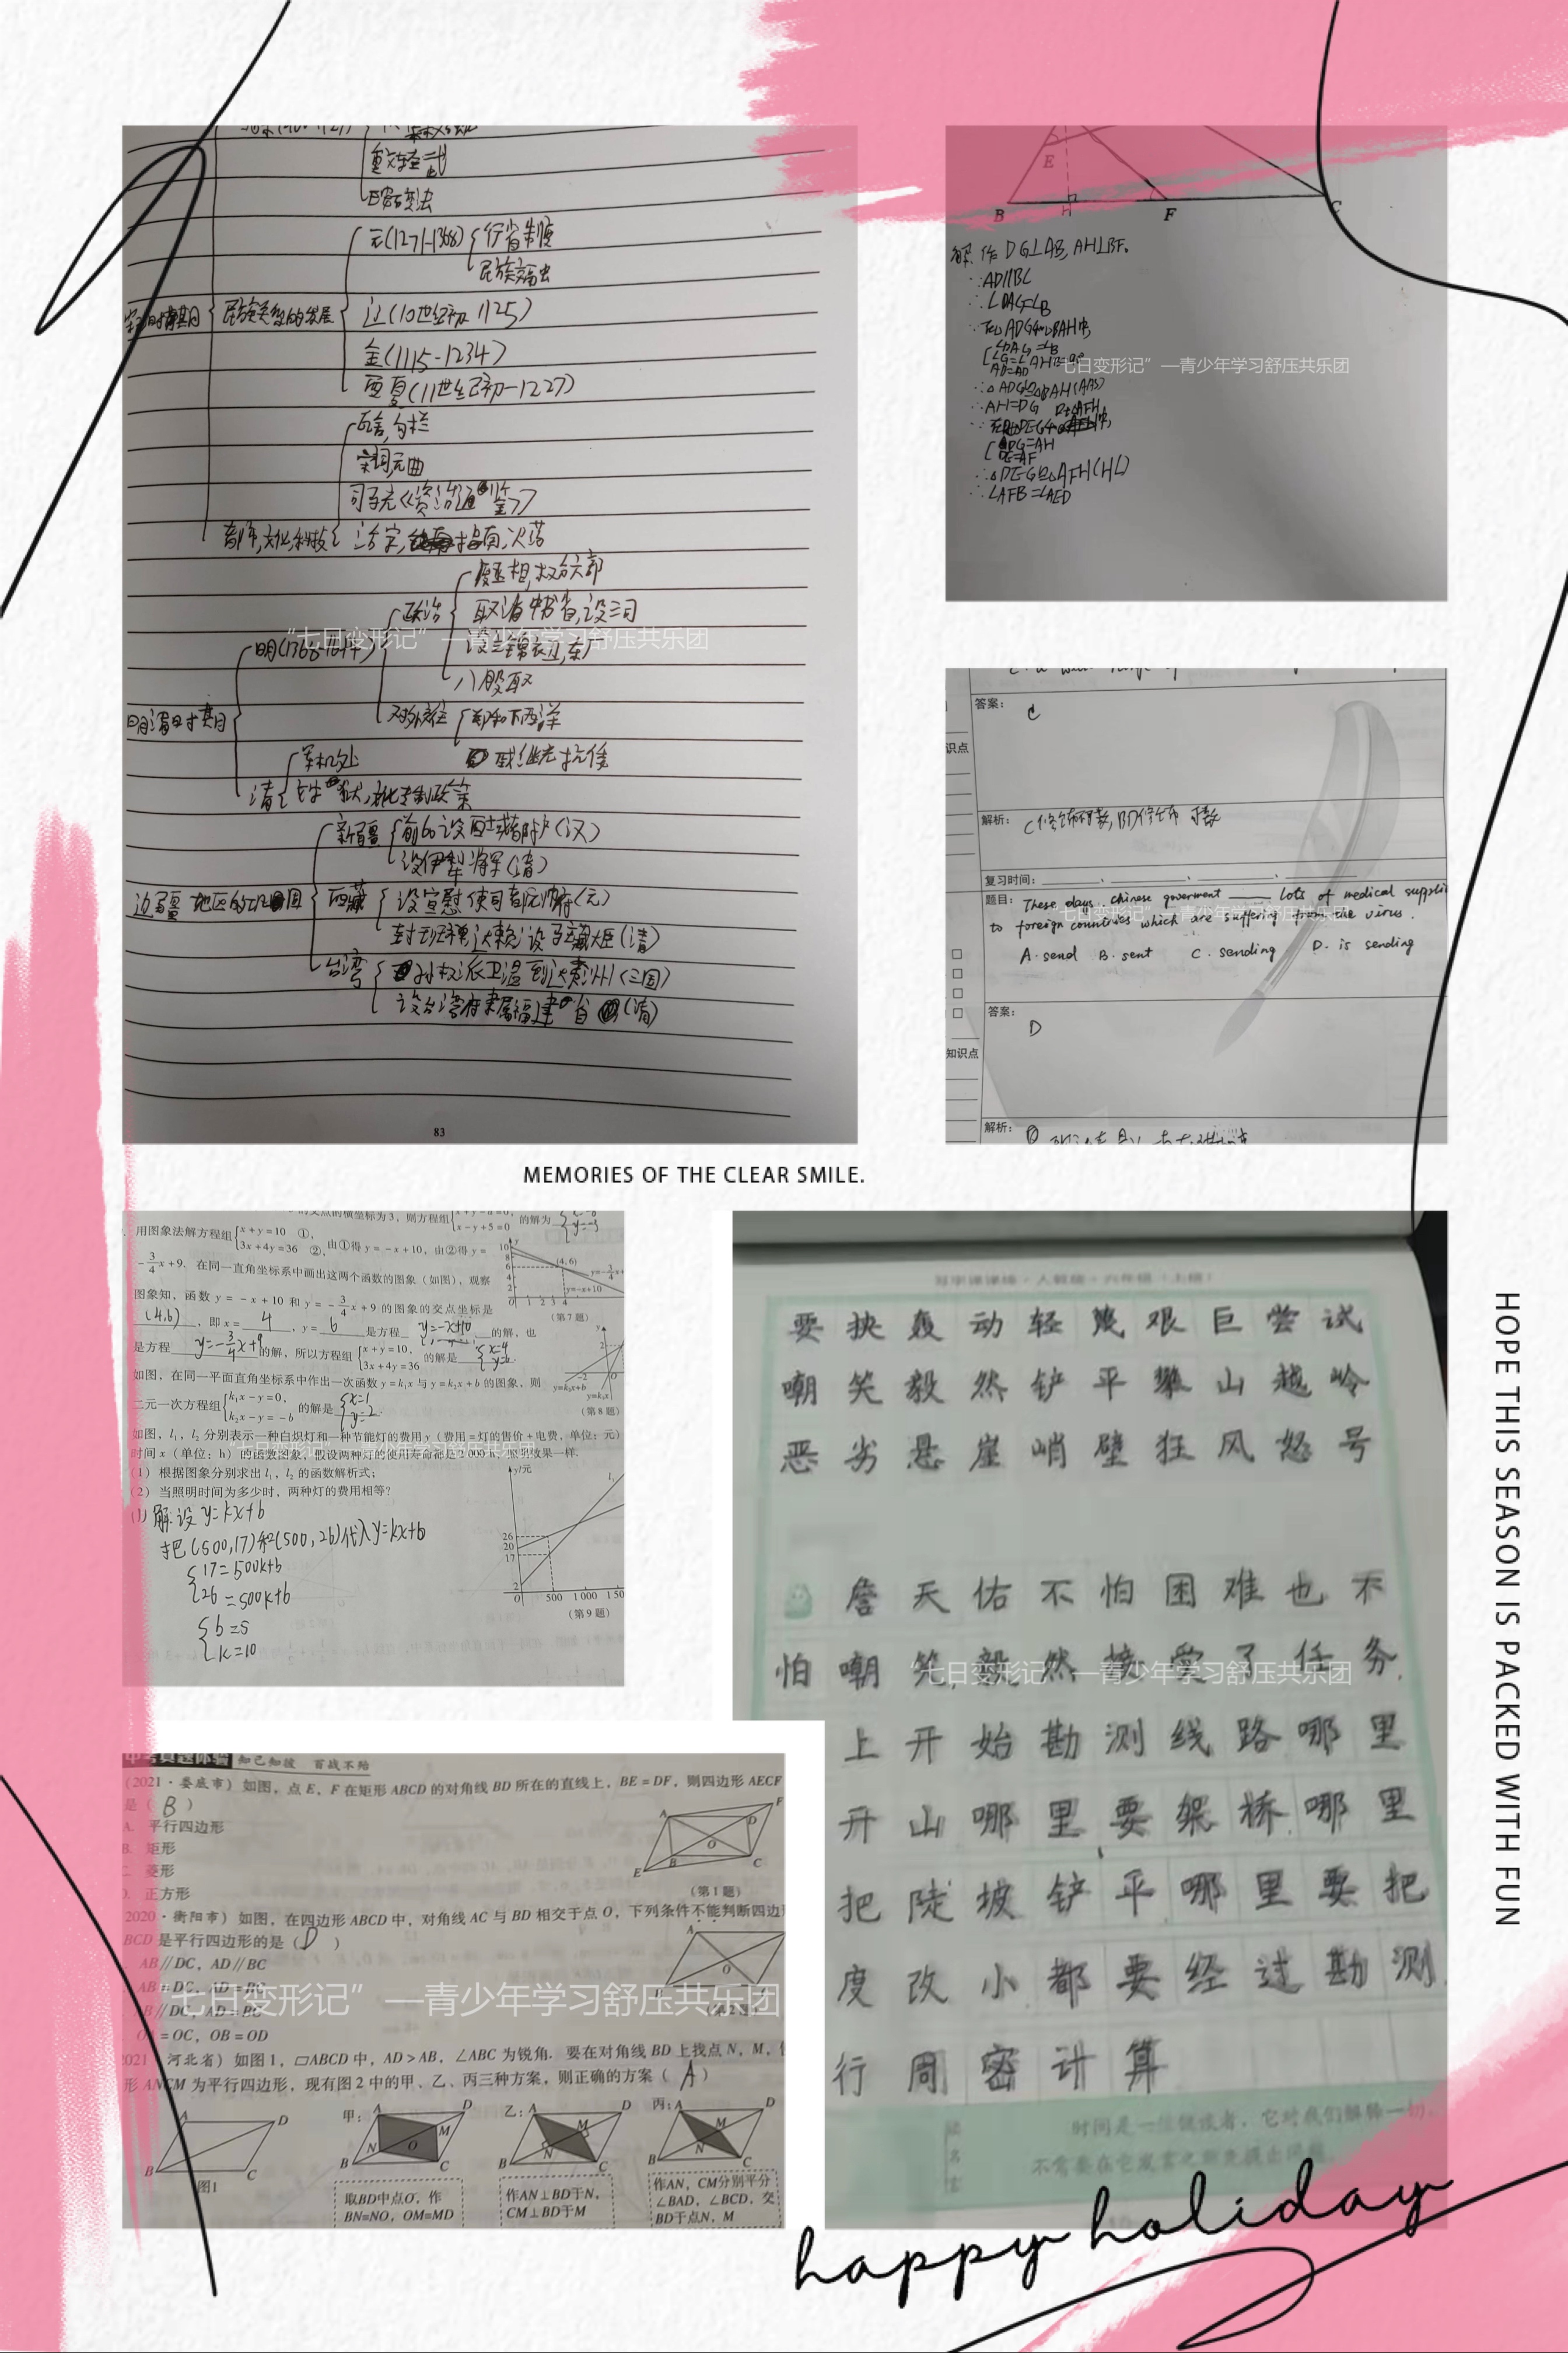 重文轻武
元(1271-1368)
行省制度
民族交融
民族关系的发展
辽(10世纪初-1125)
金(1115-1234)
西夏(11世纪初-1227)
瓦舍,勾栏
宋词元曲
司马光《资治通鉴》
活字,指南,火药
废丞相,权分六部
政治
取消中书省,设三司
“七日变形记”—青少年学习舒压共乐团
设立锦衣卫,东厂
八股取
明清时期
对外交往
郑和下西洋
戚继光抗倭
军机处
清
新疆
前60设西域都护(汉)
设伊犁将军(清)
边疆地区的巩固
西藏
设宣慰使司都元帅府(元)
台湾
设台湾府隶属福建省(清)
83
E
B
H
F
C
解 作DG⊥AB,AH⊥BF.
∵AD∥BC
∴∠DAG=∠B
“七日变形记”—青少年学习舒压共乐团
∴△ADG≌△BAH(AAS)
∴AH=DG
∴△DEG≌△AFH(HL)
∴∠AFB=∠AED
答案:
C
识点
解析:
复习时间:
题目: These days, chinese goverment ____ lots of medical suppli
“七日变形记”—青少年学习舒压共乐团
to foreign countries which are suffering from the virus.
A. send B. sent C. sending D. is sending
答案:
D
知识点
解析:
MEMORIES OF THE CLEAR SMILE.
的交点的横坐标为3,则方程组
x-y+5=0 的解为
用图象法解方程组 x+y=10 ①,
3x+4y=36 ②, 由①得y=-x+10,由②得y=
-3/4x+9.在同一直角坐标系中画出这两个函数的图象(如图),观察
图象知,函数 y=-x+10 和 y=-3/4x+9 的图象的交点坐标是
(4,6),即x= 4 ,y= 6 是方程 y=-x+10 的解,也
是方程 y=-3/4x+9 的解,所以方程组 x+y=10,
3x+4y=36 的解是 x=4 y=6
(第7题)
如图,在同一平面直角坐标系中作出一次函数y=k₁x与y=k₂x+b的图象,则
二元一次方程组 k₁x-y=0,
k₂x-y=-b 的解是 x=1 y=2.
(第8题)
如图,l₁,l₂分别表示一种白炽灯和一种节能灯的费用y(费用=灯的售价+电费,单位:元)
“七日变形记”—青少年学习舒压共乐团
时间x(单位:h)的函数图象,假设两种灯的使用寿命都是2 000 h,照明效果一样.
(1)根据图象分别求出l₁,l₂的函数解析式;
(2)当照明时间为多少时,两种灯的费用相等?
y/元
26
20
17
2
0 500 1 000 1 50
(第9题)
(1)解:设y=kx+b
把(500,17)和(500,26)代入y=kx+b
17=500k+b
26=500k+b
b=5
k=10
要挟轰动轻蔑艰巨尝试
嘲笑毅然铲平攀山越岭
恶劣悬崖峭壁狂风怒号
詹天佑不怕困难也不
怕嘲笑,毅然接受了任务,
“七日变形记”—青少年学习舒压共乐团
上开始勘测线路哪里
开山哪里要架桥哪里
把陡坡铲平哪里要把
度改小都要经过勘测
行周密计算
时间是一位
HOPE THIS SEASON IS PACKED WITH FUN
中考真题体验 知己知彼 百战不殆
(2021·娄底市)如图,点E,F在矩形ABCD的对角线BD所在的直线上,BE=DF,则四边形AECF
是( B )
A. 平行四边形
B. 矩形
C. 菱形
D. 正方形
(第1题)
2020·衡阳市)如图,在四边形ABCD中,对角线AC与BD相交于点O,下列条件不能判断四边
BCD是平行四边形的是( D )
AB∥DC,AD∥BC
AB=DC,AD=BC
“七日变形记”—青少年学习舒压共乐团
B∥DC,AD=BC
(第2题)
=OC,OB=OD
2021 河北省)如图1,▱ABCD中,AD>AB,∠ABC为锐角.要在对角线BD上找点N,M,
形ANCM为平行四边形,现有图2中的甲、乙、丙三种方案,则正确的方案( A )
甲:
乙:
丙:
图1
取BD中点O,作
BN=NO,OM=MD
作AN⊥BD于N,
CM⊥BD于M
作AN,CM分别平分
∠BAD,∠BCD,交
BD于点N,M
happy holiday